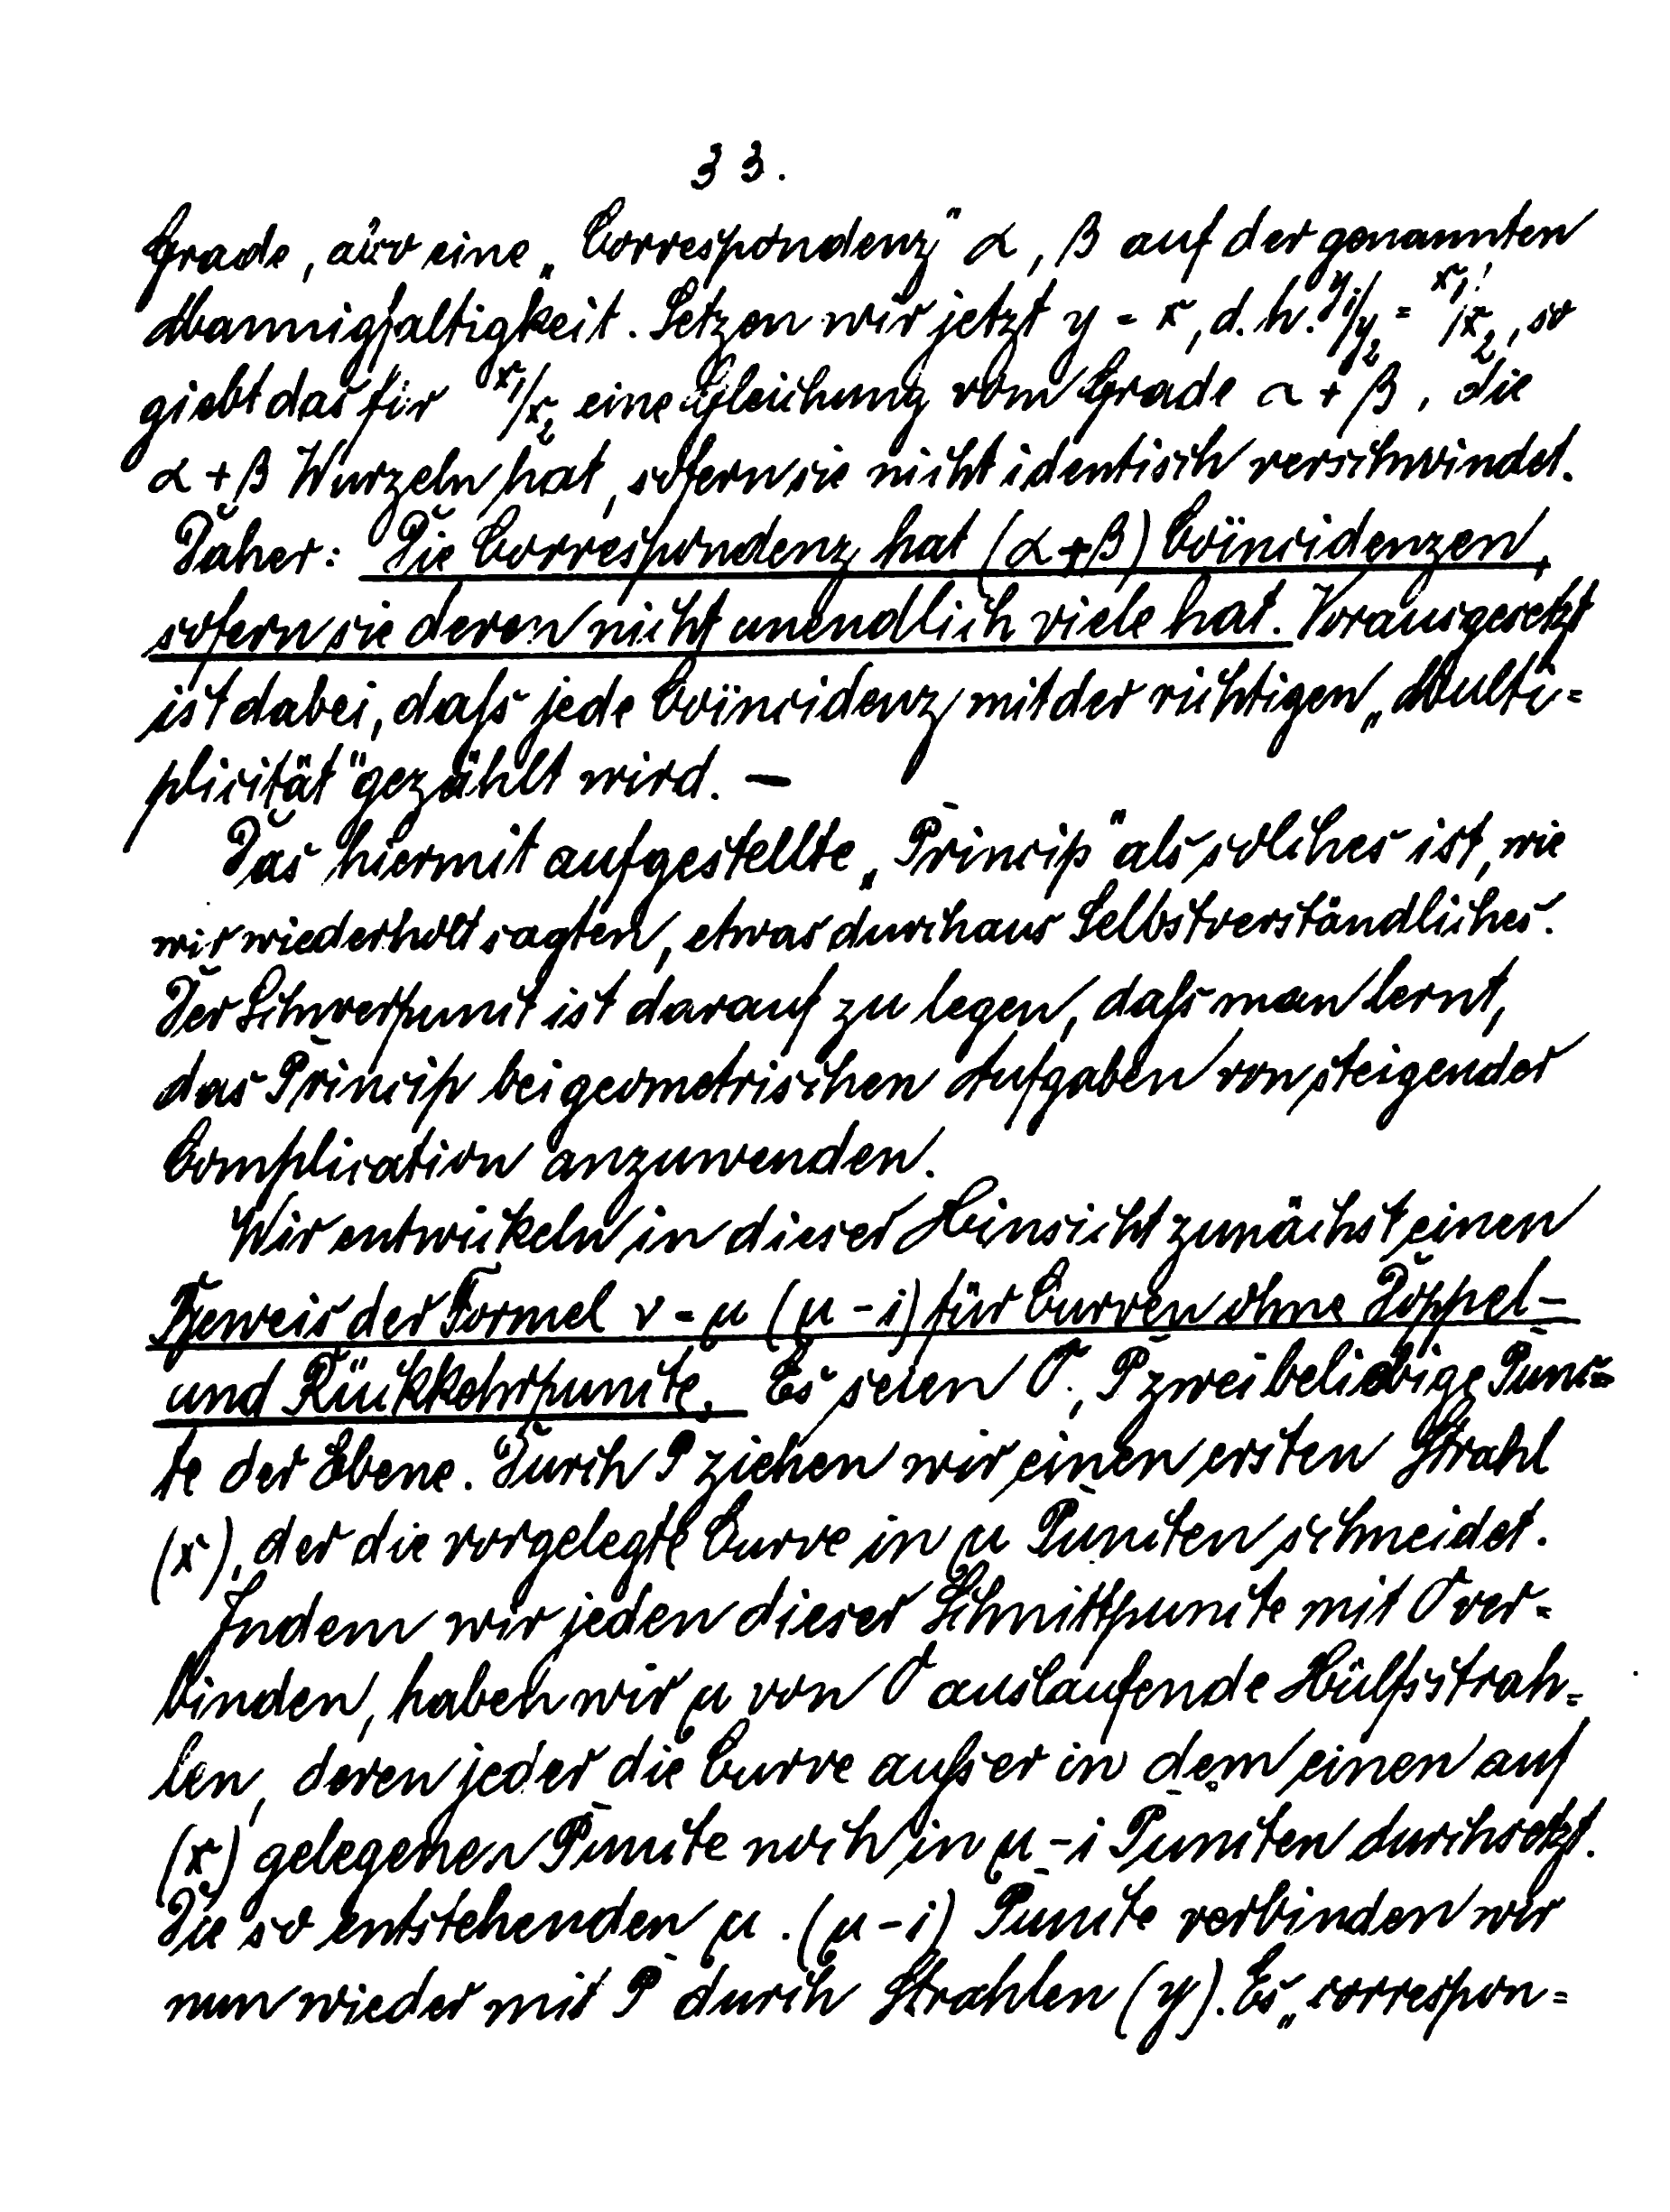 33.
Grade, also eine „Correspondenz" α, β auf der genannten
Mannigfaltigkeit. Setzen wir jetzt y = x, d. h. y₁/y₂ = x₁/x₂, so
giebt das für x₁/x₂ eine Gleichung vom Grade α + β, die
α + β Wurzeln hat, sofern sie nicht identisch verschwindet.
Daher: Die Correspondenz hat (α + β) Coïncidenzen,
sofern sie deren nicht unendlich viele hat. Vorausgesetzt
ist dabei, daſs jede Coïncidenz mit der richtigen „Multi=
plicität" gezählt wird. —
Das hiermit aufgestellte „Princip" als solches ist, wie
wir wiederholt sagten, etwas durchaus Selbstverständliches.
Der Schwerpunct ist darauf zu legen, daſs man lernt,
das Princip bei geometrischen Aufgaben von steigender
Complication anzuwenden.
Wir entwickeln in dieser Hinsicht zunächst einen
Beweis der Formel ν = μ (μ - 1) für Curven ohne Doppel-
und Rückkehrpuncte. Es seien O, P zwei beliebige Punc=
te der Ebene. Durch P ziehen wir einen ersten Strahl
(x), der die vorgelegte Curve in μ Puncten schneidet.
Indem wir jeden dieser Schnittpuncte mit O ver=
binden, haben wir μ von O auslaufende Hülfsstrah=
len, deren jeder die Curve auſser in dem einen auf
(x) gelegenen Puncte noch in μ - 1 Puncten durchsetzt.
Die so entstehenden μ . (μ - 1) Puncte verbinden wir
nun wieder mit P durch Strahlen (y). Es „correspon=